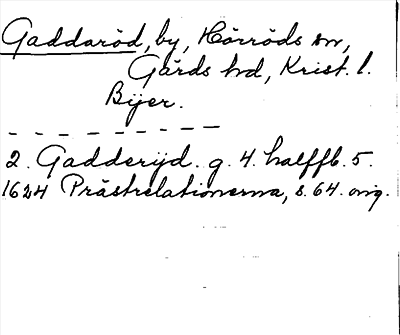 Gaddaröd, by, Hörröds sn,
Gärds hd, Krist. l.
Byer.
2. Gadderÿd. g. 4. halffb. 5.
1624 Prästrelationerna, s. 64. orig.